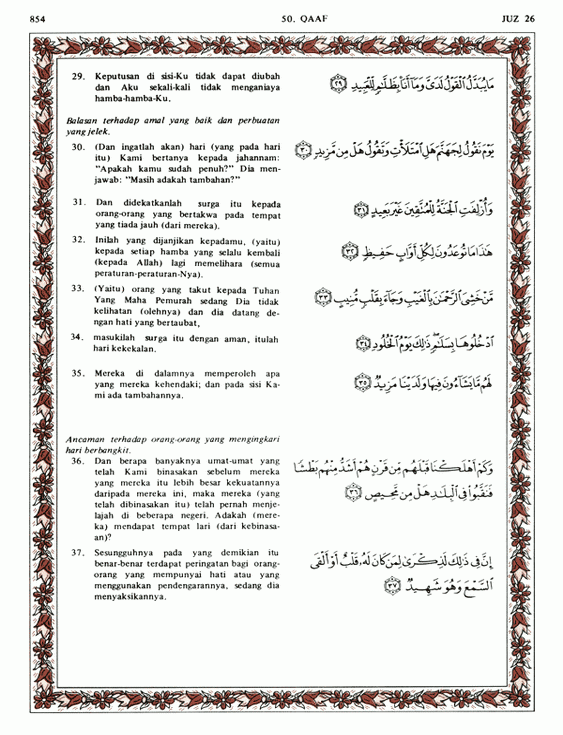 854
50. QAAF
JUZ 26
29. Keputusan di sisi-Ku tidak dapat diubah
dan Aku sekali-kali tidak menganiaya
hamba-hamba-Ku.
مَا يُبَدَّلُ ٱلْقَوْلُ لَدَىَّ وَمَآ أَنَا۠ بِظَلَّٰمٍ لِّلْعَبِيدِ ٢٩
Balasan terhadap amal yang baik dan perbuatan
yang jelek.
30. (Dan ingatlah akan) hari (yang pada hari
itu) Kami bertanya kepada jahannam:
"Apakah kamu sudah penuh?" Dia men-
jawab: "Masih adakah tambahan?"
يَوْمَ نَقُولُ لِجَهَنَّمَ هَلِ ٱمْتَلَأْتِ وَتَقُولُ هَلْ مِن مَّزِيدٍ ٣٠
31. Dan didekatkanlah surga itu kepada
orang-orang yang bertakwa pada tempat
yang tiada jauh (dari mereka).
وَأُزْلِفَتِ ٱلْجَنَّةُ لِلْمُتَّقِينَ غَيْرَ بَعِيدٍ ٣١
32. Inilah yang dijanjikan kepadamu, (yaitu)
kepada setiap hamba yang selalu kembali
(kepada Allah) lagi memelihara (semua
peraturan-peraturan-Nya).
هَٰذَا مَا تُوعَدُونَ لِكُلِّ أَوَّابٍ حَفِيظٍ ٣٢
33. (Yaitu) orang yang takut kepada Tuhan
Yang Maha Pemurah sedang Dia tidak
kelihatan (olehnya) dan dia datang de-
ngan hati yang bertaubat,
مَّنْ خَشِىَ ٱلرَّحْمَٰنَ بِٱلْغَيْبِ وَجَآءَ بِقَلْبٍ مُّنِيبٍ ٣٣
34. masukilah surga itu dengan aman, itulah
hari kekekalan.
ٱدْخُلُوهَا بِسَلَٰمٍ ذَٰلِكَ يَوْمُ ٱلْخُلُودِ ٣٤
35. Mereka di dalamnya memperoleh apa
yang mereka kehendaki; dan pada sisi Ka-
mi ada tambahannya.
لَهُم مَّا يَشَآءُونَ فِيهَا وَلَدَيْنَا مَزِيدٌ ٣٥
Ancaman terhadap orang-orang yang mengingkari
hari berbangkit.
36. Dan berapa banyaknya umat-umat yang
telah Kami binasakan sebelum mereka
yang mereka itu lebih besar kekuatannya
daripada mereka ini, maka mereka (yang
telah dibinasakan itu) telah pernah menje-
lajah di beberapa negeri. Adakah (mere-
ka) mendapat tempat lari (dari kebinasa-
an)?
وَكَمْ أَهْلَكْنَا قَبْلَهُم مِّن قَرْنٍ هُمْ أَشَدُّ مِنْهُم بَطْشًا
فَنَقَّبُوا۟ فِى ٱلْبِلَٰدِ هَلْ مِن مَّحِيصٍ ٣٦
37. Sesungguhnya pada yang demikian itu
benar-benar terdapat peringatan bagi orang-
orang yang mempunyai hati atau yang
menggunakan pendengarannya, sedang dia
menyaksikannya.
إِنَّ فِى ذَٰلِكَ لَذِكْرَىٰ لِمَن كَانَ لَهُۥ قَلْبٌ أَوْ أَلْقَى
ٱلسَّمْعَ وَهُوَ شَهِيدٌ ٣٧